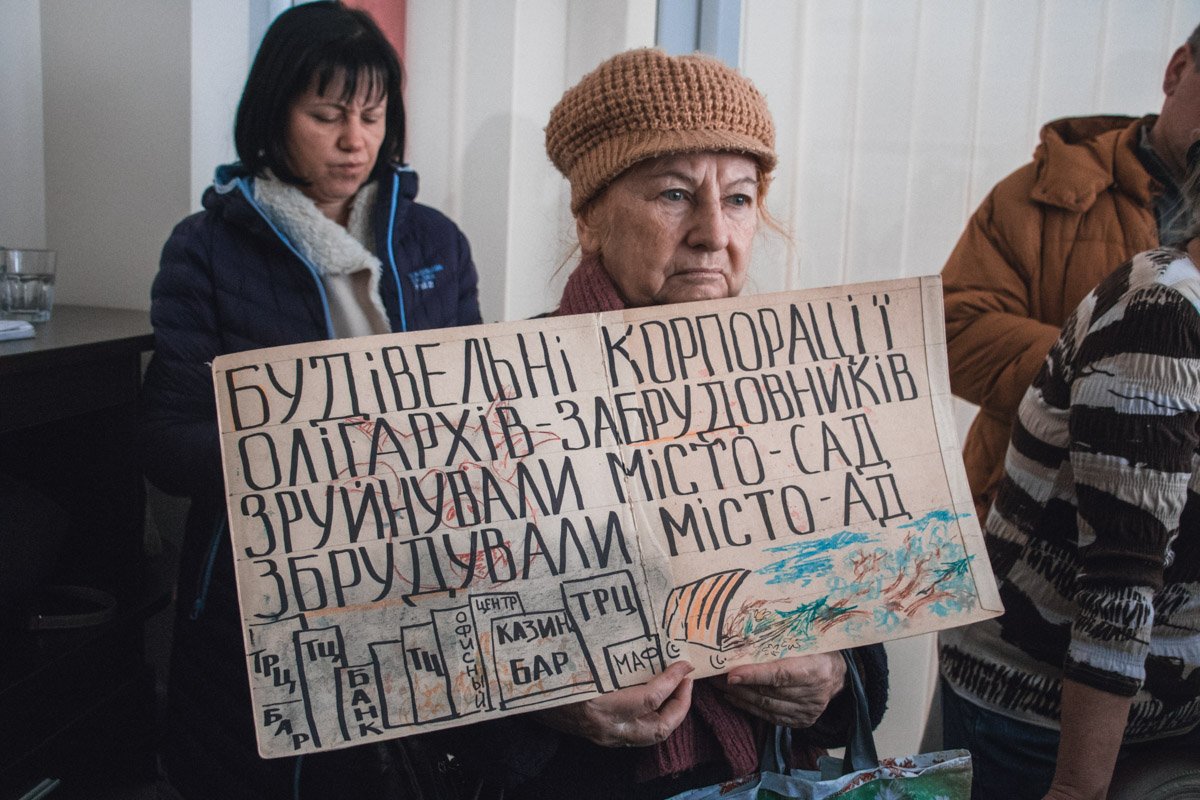 БУДІВЕЛЬНІ КОРПОРАЦІЇ
ОЛІГАРХІВ-ЗАБРУДОВНИКІВ
ЗРУЙНУВАЛИ МІСТО-САД
ЗБРУДУВАЛИ МІСТО-АД
ТРЦ,
БАР
ТЦ
БАНК
ТЦ
ОФИСНЫЙ
ЦЕНТР
КАЗИН
БАР
ТРЦ
МАФ